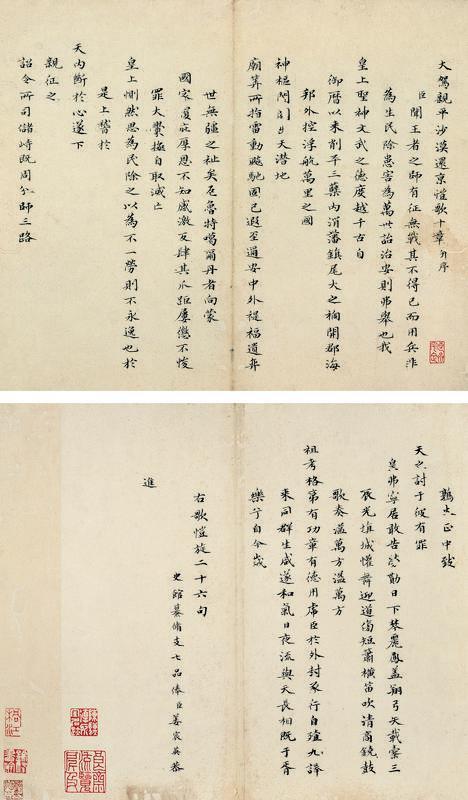 大駕親平沙漠還京愷歌十章有序
臣聞王者之師有征無戰其不得已而用兵非
為生民除患害為萬世詒治安則弗舉也我
皇上聖神文武之德度越千古自
御曆以來削平三蘖內消藩鎮尾大之禍開郡海
邦外控浮航萬里之國
神樞天潛地
廟算所指雷動飈馳固已遐至邇安中外禔福遺
世無疆之祉矣魯特噶爾丹者向蒙
國家覆庇厚恩不知感激反肆其爪距屢懲不悛
罪大釁極自取滅亡
皇上惻然思為民除之以為不一勞則不永逸也於
是上稽於
天內斷於心遂下
親征之
詔令所司儲峙既周分師三路
鶉火正中發
天之討于彼有罪
皇弗寧居敢告勤日下琴麗鳳蓋翔弓矢載櫜三
辰光堆城懽舞迎道傍短簫橫笛吹清商鐃鼓
歌奏溢萬方溢萬方
祖考格第有功章有德用虎臣於外封豕行自殪九譯
來同群生咸遂和氣日夜流與天長相既于胥
樂兮自今歲
右歌愷旋二十六句
史館纂脩支七品俸臣姜宸英恭
進